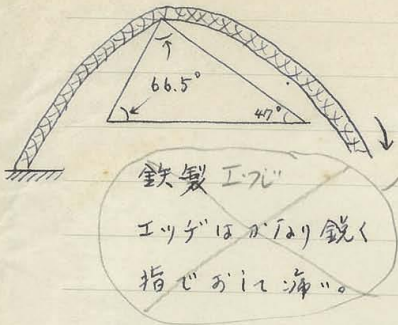 66.5°
47°
鉄製エッヂ
エッヂはかなり鋭く
指でおして痛い。